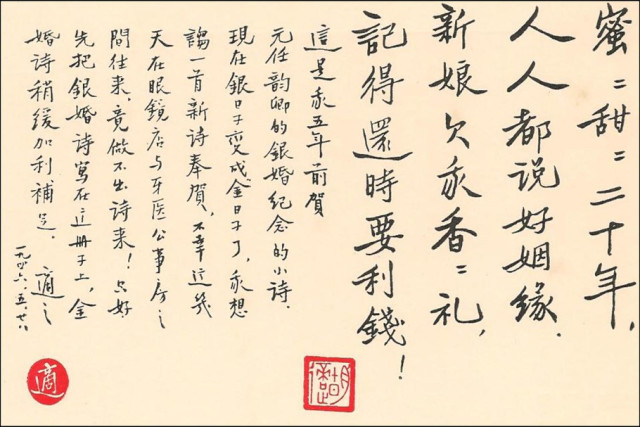 蜜〻甜〻二十年,
人人都说好姻缘.
新娘欠我香〻礼,
記得還時要利錢!
這是我五年前賀
元任韵卿的銀婚紀念的小詩.
現在銀日子变成金日子了,我想
謅一首新詩奉賀,不幸這幾
天在眼鏡店与牙医公事房之
間往来,竟做不出詩来!只好
先把銀婚诗寫在这册子上,金
婚诗稍缓加利補足. 適之
一九四六.五.廿八
胡適
適